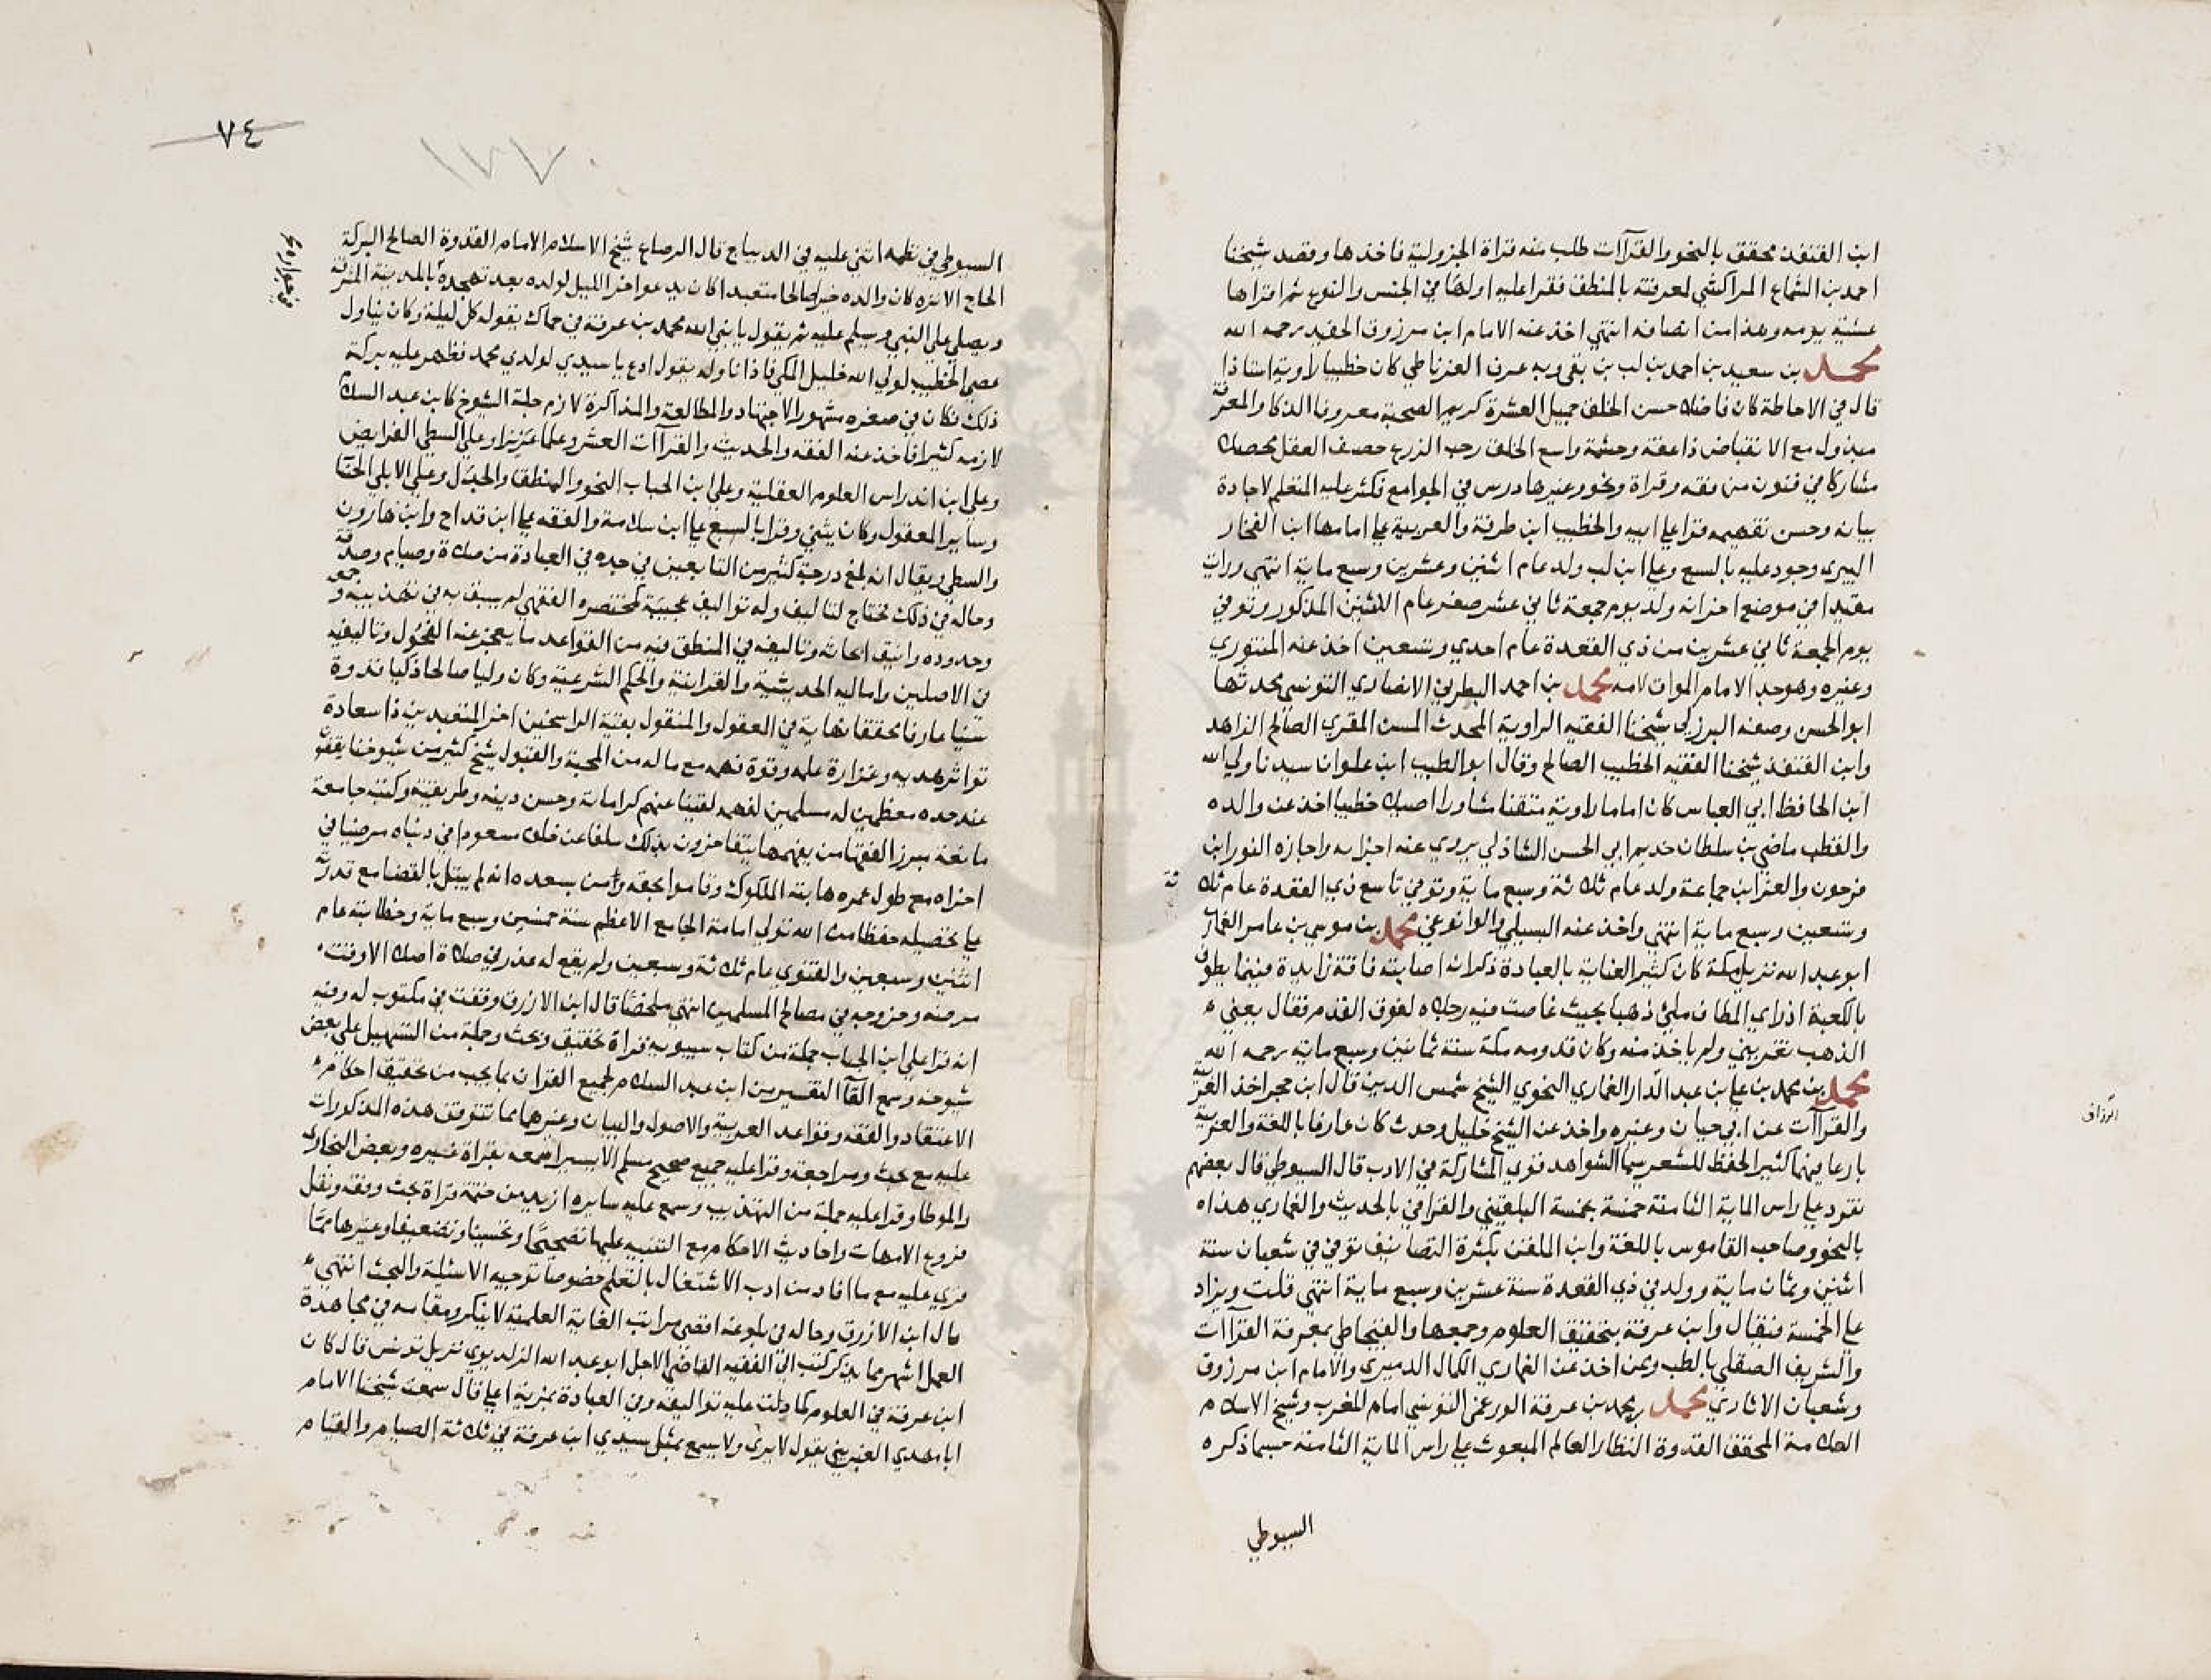 ابن القنفذ محقق بالنحو والقراآت طلب منه قراة الجزولية فاخذها وقصد شيخنا
احمد بن الشماع المراكشي لمعرفته بالمنطق فقرا عليه اولها في الجنس والنوع ثم اقراها
عشية يومه وهذا من انصافه انتهي اخذ عنه الامام ابن مرزوق الحفيد رحمه الله
محمد بن سعيد بن احمد بن لب بن بقي وبه عرف الغرناطي كان خطيبا راوية استاذا
قال في الاحاطة كان فاضلا حسن الخلق جميل العشرة كريم الصحبة معروفا الذكا والمعرفة
مبذول مع الانقباض ذا عفة وحشمة واسع الخلق رحب الذرع حصيف العقل محصلا
مشاركا في فنون من فقه وقراة ونحو وغيرها درس في الجوامع فكثر عليه المتعلم لاجادة
بيانه وحسن تفهيمه قرا علي ابيه والخطيب ابن طرفة والعربية علي امامها ابن الفخار
البيري وجود عليه بالسبع وعلي ابن لب ولد عام اثنين وعشرين وسبع ماية انتهي ورايت
مقيدا في موضع اخر انه ولد يوم جمعة ثاني عشر صفر عام اللاثنين المذكور وتوفي
يوم الجمعة ثاني عشرين من ذي القعدة عام احدي وتسعين اخذ عنه المنتوري
وغيره وهو جد الامام المواق لامه محمد بن احمد البطرني الانصاري التونسي محدثها
ابو الحسن وصفه البرزلي بشيخنا الفقيه الراوية المحدث المسن المقري الصالح الزاهد
وابن القنفذ شيخنا الفقيه الخطيب الصالح وقال ابو الطيب ابن علوان سيدنا ولي الله
ابن الحافظ ابي العباس كان اماما راوية متقنا مشاورا اصيلا خطيبا اخذ عن والده
والقطب ماضي بن سلطان خديم ابي الحسن الشاذلي يروي عنه احزابه واجازه النور ابن
فرحون والعز ابن جماعة ولد عام ثلاثة وسبع ماية وتوفي تاسع ذي القعدة عام ثلا
ثة
وتسعين وسبع ماية انتهي واخذ عنه البسيلي والوانوغي محمد بن موسي بن عامر الغماري
ابو عبد الله نزيل مكة كان كثير العناية بالعبادة ذكر انه اصابته فاقة زايدة فبينما يطوف
بالكعبة اذ راي المطاف ملئ ذهبا بحيث غاصت فيه رجلاه لفوق القدم فقال يعني
الذهب تغريني ولم ياخذ منه وكان قدومه مكة سنة ثمانين وسبع ماية رحمه الله
محمد بن محمد بن علي بن عبد الدار الغماري النحوي الشيخ شمس الدين قال ابن حجر اخذ العربية
الرزاق
والقراآت عن ابي حيان وغيره واخذ عن الشيخ خليل وحدث كان عارفا باللغة والعربية
بارعا فيهما كثير الحفظ للشعر سيما الشواهد قوي المشاركة في الادب قال السيوطي قال بعضهم
تفرد علي راس الماية الثامنة خمسة بخمسة البلقيني والعراقي بالحديث والغماري هذاه
بالنحو وصاحب القاموس باللغة وابن الملقن بكثرة التصانيف توفي في شعبان سنة
اثنين وثمان ماية وولد في ذي القعدة سنة عشرين وسبع ماية انتهي قلت ويزاد
علي الخمسة فيقال وابن عرفة بتحقيق العلوم وجمعها والقيجاطي بمعرفة القراآت
والشريف الصقلي بالطب وممن اخذ عن الغماري الكمال الدميري والامام ابن مرزوق
وشعبان الاثاري محمد بن محمد بن عرفة الورغمي التونسي امام المغرب وشيخ الاسلام
العلامة المحقق القدوة النظار العالم المبعوث علي راس الماية الثامنة حسبما ذكره
السيوطي
٧٤
١٧٧
السيوطي في نظمه اثني عليه في الديباج قال الرصاع شيخ الاسلام الامام القدوة الصالح البركة
الحاج الانزه كان والده خيرا صالحا متعبدا كان يدعو اخر الليل لولده بعد تهجده بالمدينة المشرفة
ويصلي علي النبي ويسلم عليه ثم يقول يا نبي الله محمد بن عرفة في حماك يقوله كل ليلة وكان يناول
عصي الخطيب لولي الله خليل المكي فاذا ناوله يقول ادع يا سيدي لولدي محمد فظهر عليه بركة
ذلك فكان في صغره مشهورا الاجتهاد والمطالعة والمذاكرة لازم جلة الشيوخ كابن عبد السلام
لازمه كثيرا فاخذ عنه الفقه والحديث والقراآت العشر وعلما غزيرا وعلي السطي الفرايض
وعلي ابن اندراس العلوم العقلية وعلي ابن الحباب النحو والمنطق والجدل وعلي الابلي الحسا
وساير المعقول وكان يثني وقرا بالسبع علي ابن سلامة والفقه علي ابن قداح وابن هارون
والسطي ويقال انه بلغ درجة كثير من التابعين في جده في العبادة من صلاة وصيام وصدقة
وماله في ذلك تحتاج لتاليف وله تواليف عجيبة كمختصره الفقهي لم يسبق به في تهذيبه وجمعه
وحدوده رايق ابحاثه وتاليفه في المنطق فيه من القواعد ما يعجز عنه الفحول وتاليفيه
في الاصلين واماليه الحديثية والقرانية والحكم الشرعية وكان وليا صالحا ذكيا قدوة
سنيا عارفا محققا نهاية في المعقول والمنقول بقية الراسخين اخر المتعبدين ذا سعادة
تواتر هديه وغزارة علمه وقوة فهمه مع ماله من المحبة والقبول شيخ كثير من شيوخنا يقفون
عند حده معظمين له مسلمين لفهمه لقينا عنهم كراماته وحسن دينه وطريقته وكتبه جامعة
مانعة مبرز الفقها من يفهمها يتفاخرون بذلك سلفا عن خلف مسعود في دنياه مرضيا في
اخراه مع طول عمره هابته الملوك وقاموا بحقه وامن بسعده انه لم يبتل بالقضا مع قدرته
علي تحصيله حفظا من الله تولي امامة الجامع الاعظم سنة خمسين وسبع ماية وخطابته عام
اثنين وسبعين والفتوي عام ثلاثة وسبعين ولم يقع له عذر في صلاة اصلا الا وقت
مرضه وخروجه في مصالح المسلمين انتهي ملخصا قال ابن الازرق وقفت في مكتوب له وفيه
انه قرا علي ابن الحباب جملة من كتاب سيبويه قراة تحقيق وبحث وجملة من التسهيل علي بعض
شيوخه وسمع القا التفسير من ابن عبد السلام لجميع القران بما يجب من تحقيق احكام
الاعتقاد والفقه وقواعد العربية والاصول والبيان وغيرها مما تتوقف هذه المذكورات
عليه مع بحث ومراجعة وقرا عليه جميع صحيح مسلم الا يسيرا سمعه بقراة غيره وبعض البخاري
والموطا وقرا عليه جملة من التهذيب وسمع عليه سايره ازيد من ختمة قراة بحث وفقه ونقل
فروع الامهات واحاديث الاحكام مع التنبيه عليها تصحيحا وتحسينا وتضعيفا وغيرها مما
قري عليه مع ما افاد من ادب الاشتغال بالتعلم خصوصا توجيه الاسئلة والبحث انتهي
قال ابن الازرق وحاله في بلوغه اقصي مراتب الغاية العلمية لا ينكر ومقامه في مجاهدة
العمل اشهر مما يذكر كتب الي الفقيه القاضي الاجل ابو عبد الله الزلديوي نزيل تونس قال كان
ابن عرفة في العلوم كما دلت عليه تواليفه وفي العبادة بمزية اعلي قال سمعت شيخنا الامام
ابا مهدي الغبريني يقول لا يري ولا يسمع بمثل سيدي ابن عرفة في ثلاثة الصيام والقيام